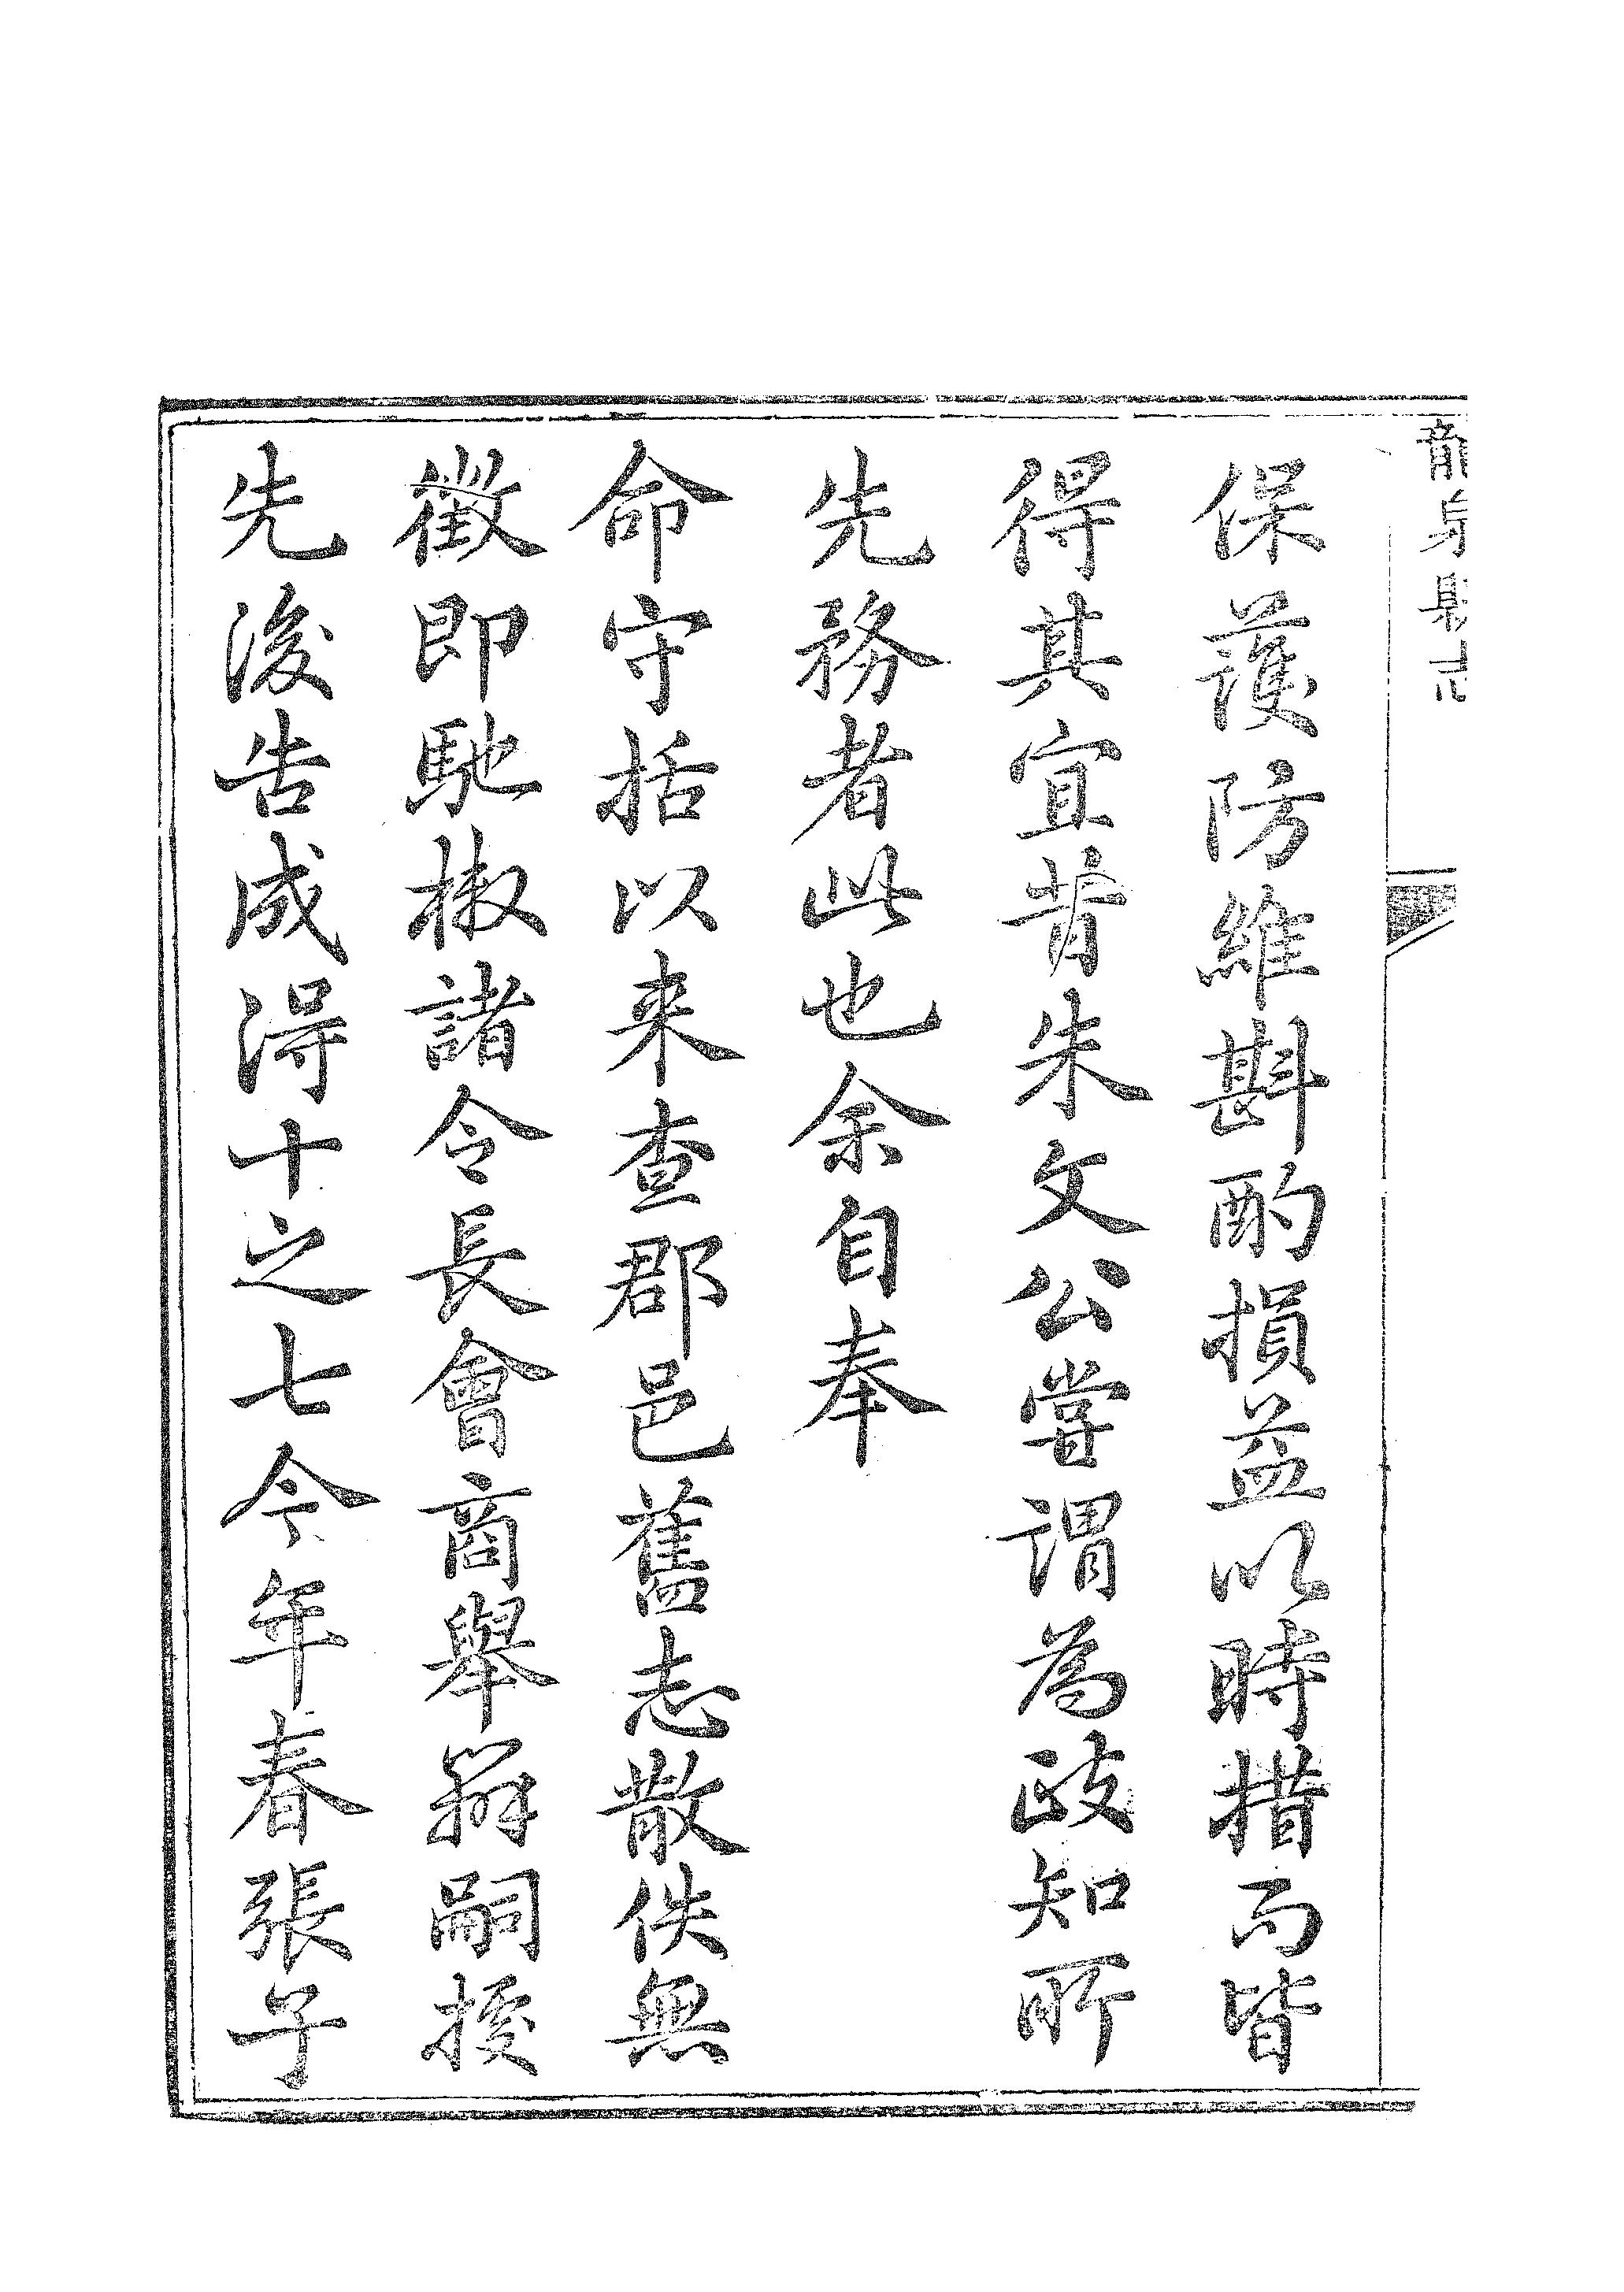 龍泉縣志
保護防維斟酌損益以時措而皆
得其宜昔朱文公嘗謂為政知所
先務者此也余自奉
命守括以来查郡邑舊志散佚無
徵即馳椒諸令長會商舉辦嗣授
先後告成得十之七今年春張子